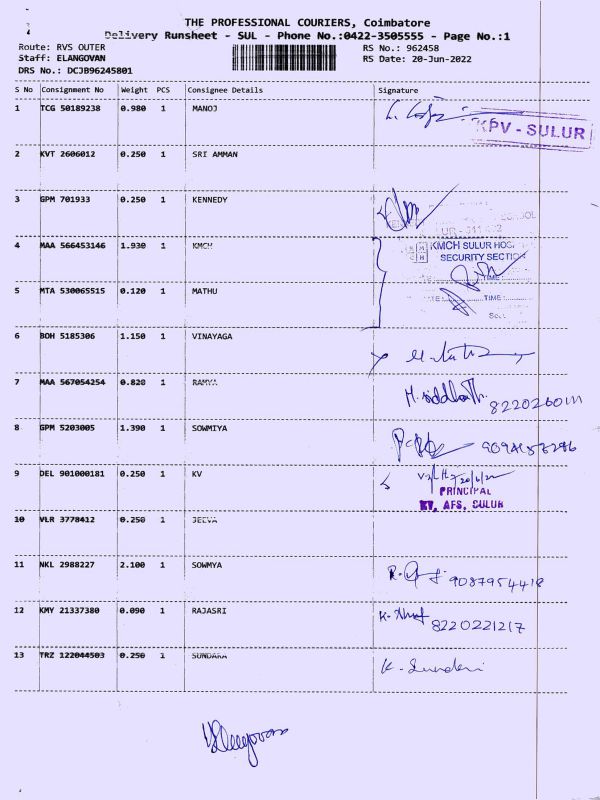 THE PROFESSIONAL COURIERS, Coimbatore
Delivery Runsheet - SUL - Phone No.:0422-3505555 - Page No.:1
Route: RVS OUTER RS No.: 962458
Staff: ELANGOVAN RS Date: 20-Jun-2022
DRS No.: DCJB96245801
S No Consignment No Weight PCS Consignee Details Signature
1 TCG 50189238 0.980 1 MANOJ
KPV - SULUR
2 KVT 2606012 0.250 1 SRI AMMAN
3 GPM 701933 0.250 1 KENNEDY
4 MAA 566453146 1.930 1 KMCH KMCH SULUR HOS
SECURITY SECTION
TIME
5 MTA 530065515 0.120 1 MATHU TIME
6 BOH 5185306 1.150 1 VINAYAGA
7 MAA 567054254 0.820 1 RAMYA M. Siddharth
8 GPM 5203005 1.390 1 SOWMIYA
9 DEL 901000181 0.250 1 KV 20/6/22
PRINCIPAL
KV, AFS, SULUR
10 VLR 3778412 0.250 1 JEEVA
11 NKL 2988227 2.100 1 SOWMYA 9087954418
12 KMY 21337380 0.090 1 RAJASRI 8220221217
13 TRZ 122044503 0.250 1 SUNDARA K. Sundari
Elangovan